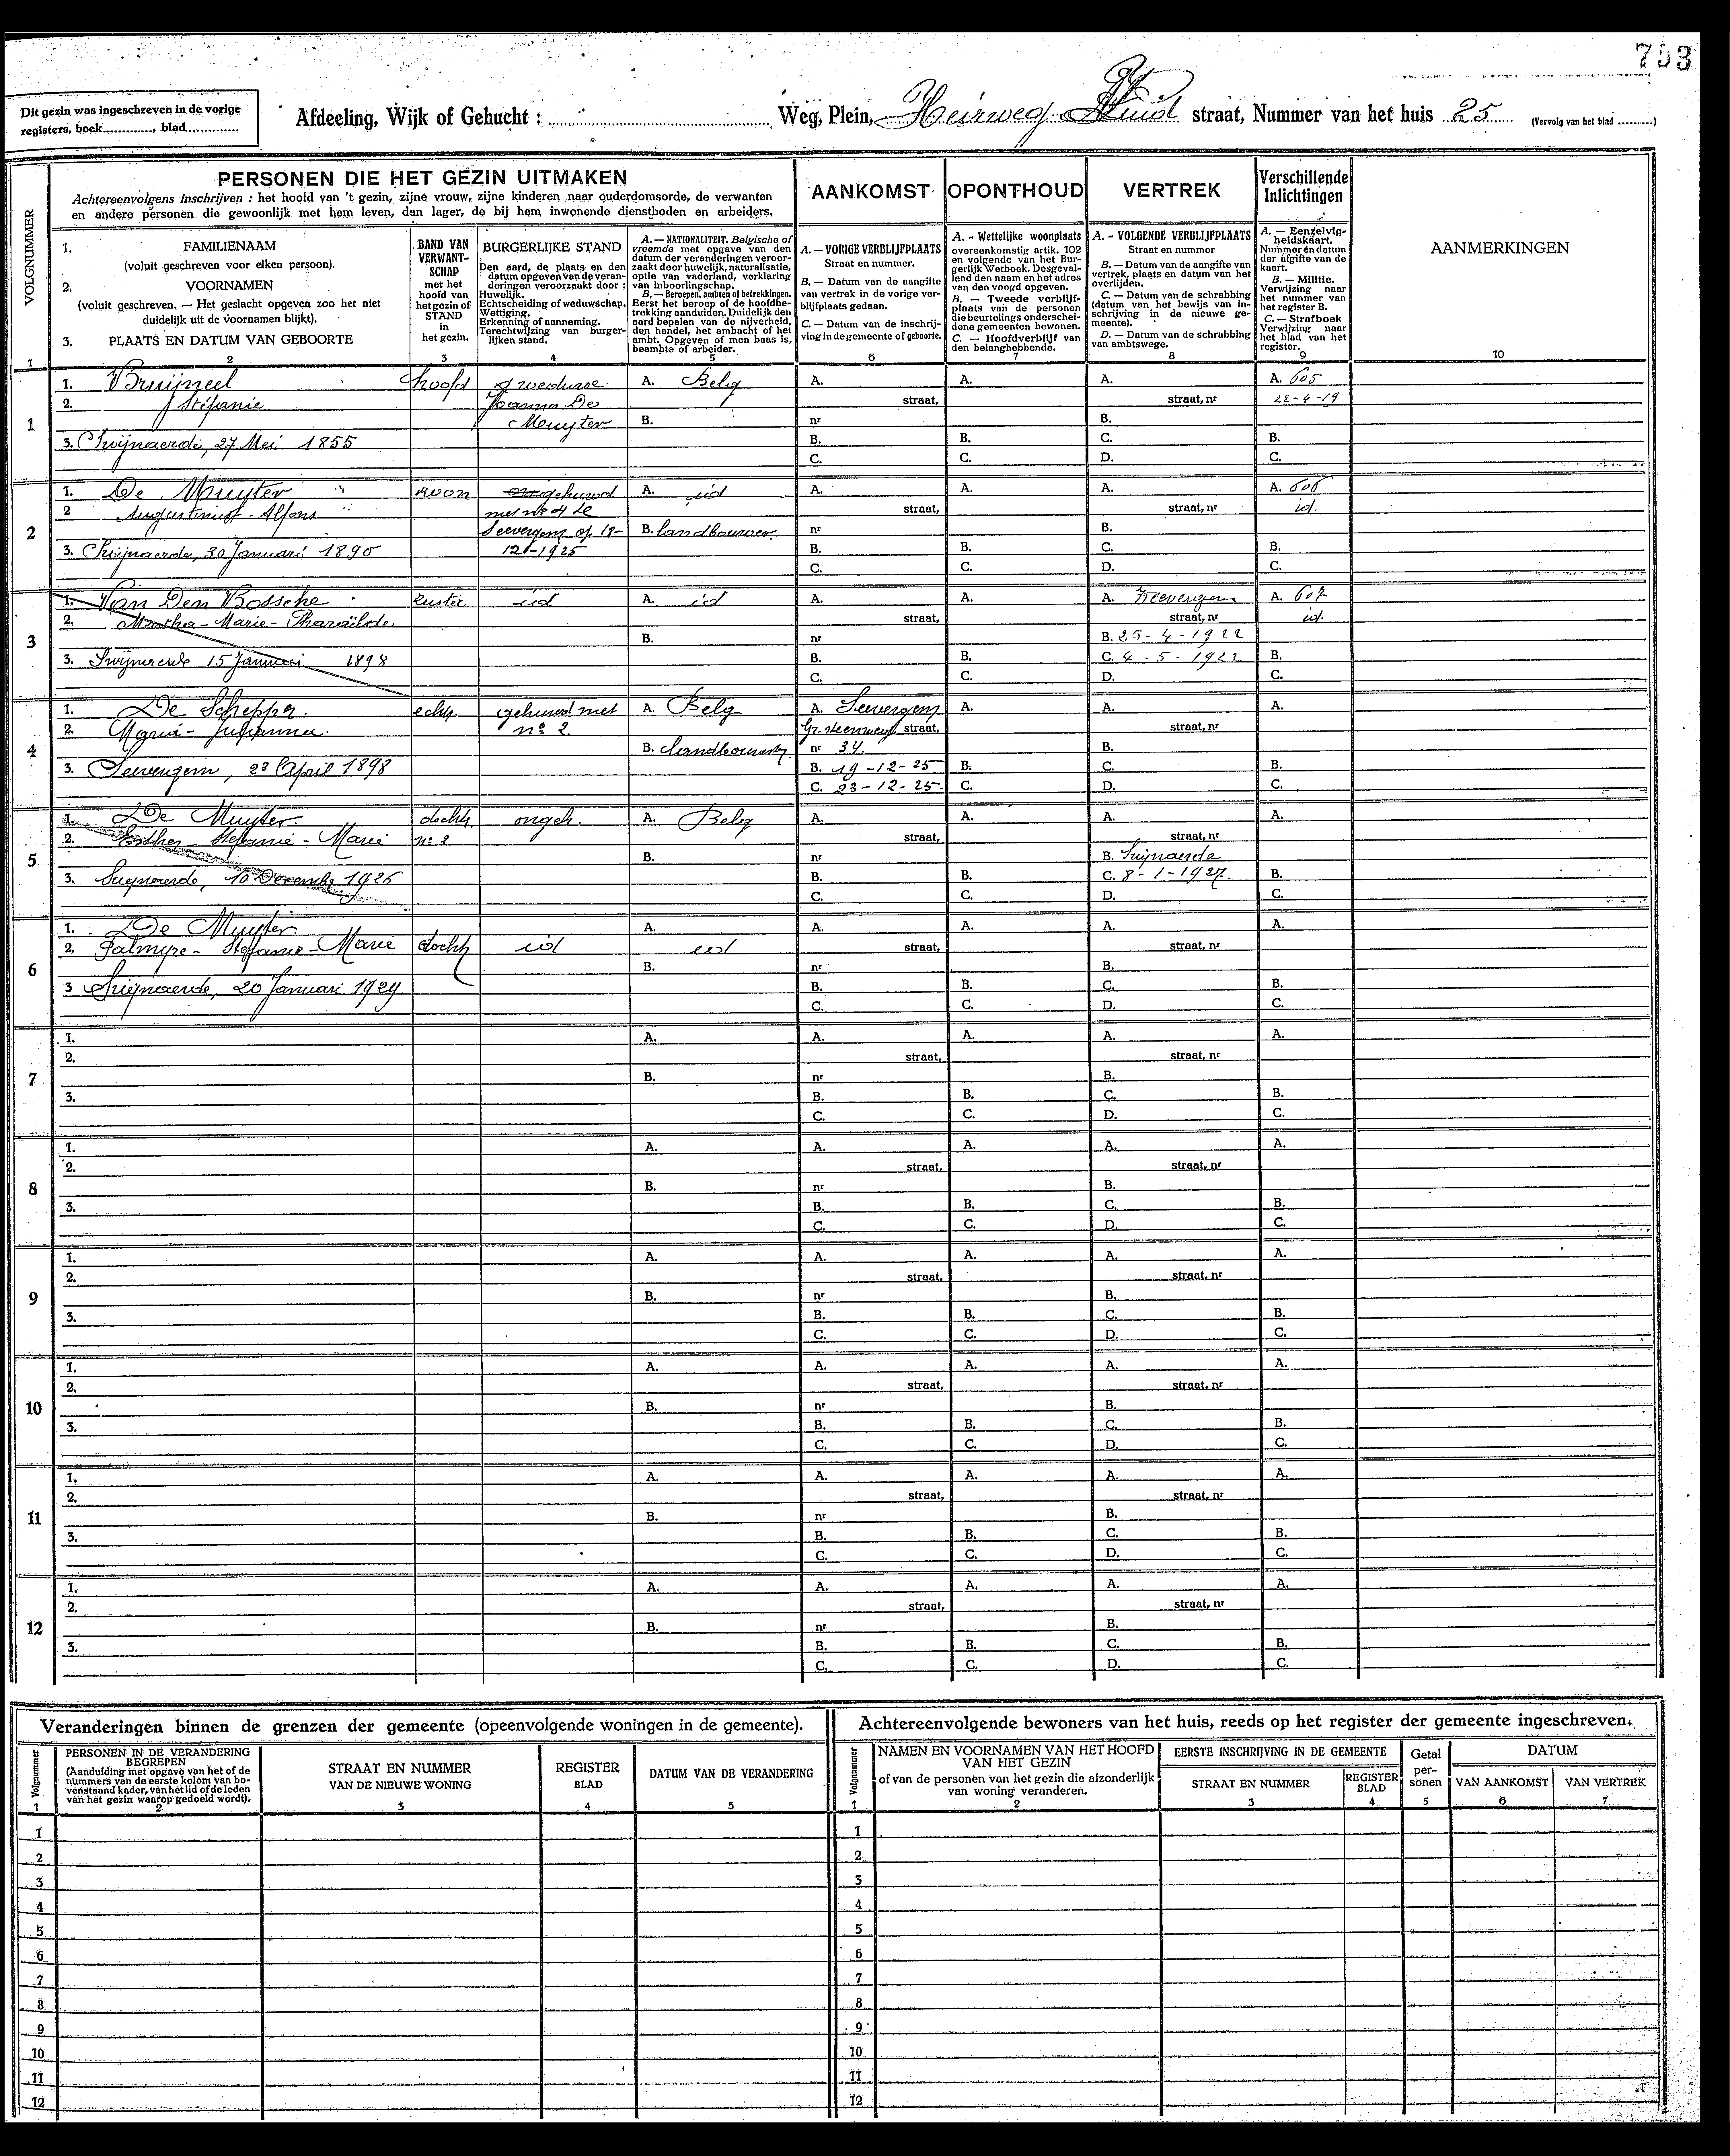 753
Dit gezin was ingeschreven in de vorige
registers, boek............, blad..............
Afdeeling, Wijk of Gehucht : Weg, Plein, Heirweg Zuid straat, Nummer van het huis 25 (Vervolg van het blad .........)
VOLGNUMMER
PERSONEN DIE HET GEZIN UITMAKEN
Achtereenvolgens inschrijven : het hoofd van 't gezin, zijne vrouw, zijne kinderen naar ouderdomsorde, de verwanten
en andere personen die gewoonlijk met hem leven, dan lager, de bij hem inwonende dienstboden en arbeiders.
AANKOMST
OPONTHOUD
VERTREK
Verschillende
Inlichtingen
1. FAMILIENAAM
(voluit geschreven voor elken persoon).
2. VOORNAMEN
(voluit geschreven. — Het geslacht opgeven zoo het niet
duidelijk uit de voornamen blijkt).
3. PLAATS EN DATUM VAN GEBOORTE
BAND VAN
VERWANT-
SCHAP
met het
hoofd van
het gezin of
STAND
in
het gezin.
BURGERLIJKE STAND
Den aard, de plaats en den
datum opgeven van de veran-
deringen veroorzaakt door :
Huwelijk.
Echtscheiding of weduwschap.
Wettiging.
Erkenning of aanneming.
Terechtwijzing van burger-
lijken stand.
A. — NATIONALITEIT. Belgische of
vreemde met opgave van den
datum der veranderingen veroor-
zaakt door huwelijk, naturalisatie,
optie van vaderland, verklaring
van inboorlingschap.
B. — Beroepen, ambten of betrekkingen.
Eerst het beroep of de hoofdbe-
trekking aanduiden. Duidelijk den
aard bepalen van de nijverheid,
den handel, het ambacht of het
ambt. Opgeven of men baas is,
beambte of arbeider.
A. — VORIGE VERBLIJFPLAATS
Straat en nummer.
B. — Datum van de aangifte
van vertrek in de vorige ver-
blijfplaats gedaan.
C. — Datum van de inschrij-
ving in de gemeente of geboorte.
A. - Wettelijke woonplaats
overeenkomstig artik. 102
en volgende van het Bur-
gerlijk Wetboek. Desgeval-
lend den naam en het adres
van den voogd opgeven.
B. — Tweede verblijf-
plaats van de personen
die beurtelings onderschei-
dene gemeenten bewonen.
C. — Hoofdverblijf van
den belanghebbende.
A. - VOLGENDE VERBLIJFPLAATS
Straat en nummer
B. — Datum van de aangifte van
vertrek, plaats en datum van het
overlijden.
C. — Datum van de schrabbing
(datum van het bewijs van in-
schrijving in de nieuwe ge-
meente).
D. — Datum van de schrabbing
van ambtswege.
A. — Eenzelvig-
heidskaart.
Nummer en datum
der afgifte van de
kaart.
B. — Militie.
Verwijzing naar
het nummer van
het register B.
C. — Strafboek
Verwijzing naar
het blad van het
register.
AANMERKINGEN
1 2 3 4 5 6 7 8 9 10
1
1. Bruijneel hoofd weduwe A. Belg A. A. A. A. 605
2. Stéfanie Joannes De straat, straat, nr 22-4-19
Muyter B. nr B.
3. Swijnaerde, 27 Mei 1855 B. B. C. B.
C. C. D. C.
2
1. De Muyter zoon gehuwd A. id A. A. A. A. 606
2 Augustinus-Alfons met nr 4 te straat, straat, nr id.
Seevergem op 18- B. landbouwer. nr B.
3. Swijnaerde, 30 Januari 1890 12-1925 B. B. C. B.
C. C. D. C.
3
1. Van Den Bossche id A. id A. A. A. Zeevergem A. 607
2. Martha-Marie-Pharaïlde straat, straat, nr id.
B. nr B. 25-4-1922
3. Swijnaerde 15 Januari 1898 B. B. C. 4-5-1922 B.
C. C. D. C.
4
1. De Schepper echtg. gehuwd met A. Belg A. Seevergem A. A. A.
2. Maria-Julianna. no 2 Gr. steenweg straat, straat, nr
B. landbouwster nr 34. B.
3. Seevergem, 23 April 1898 B. 19-12-25 B. C. B.
C. 23-12-25. C. D. C.
5
1. De Muyter dochtr ongeh. A. Belg A. A. A. A.
2. Esther-Stefanie-Marie no 2 straat, straat, nr
B. nr B. Swijnaerde
3. Swijnaerde, 10 December 1926 B. B. C. 8-1-1927. B.
C. C. D. C.
6
1. De Muyter A. A. A. A. A.
2. Palmyre-Stefanie-Marie dochtr id id straat, straat, nr
B. nr B.
3 Swijnaerde, 20 Januari 1929 B. B. C. B.
C. C. D. C.
7
1. A. A. A. A. A.
2. straat, straat, nr
B. nr B.
3. B. B. C. B.
C. C. D. C.
8
1. A. A. A. A. A.
2. straat, straat, nr
B. nr B.
3. B. B. C. B.
C. C. D. C.
9
1. A. A. A. A. A.
2. straat, straat, nr
B. nr B.
3. B. B. C. B.
C. C. D. C.
10
1. A. A. A. A. A.
2. straat, straat, nr
B. nr B.
3. B. B. C. B.
C. C. D. C.
11
1. A. A. A. A. A.
2. straat, straat, nr
B. nr B.
3. B. B. C. B.
C. C. D. C.
12
1. A. A. A. A. A.
2. straat, straat, nr
B. nr B.
3. B. B. C. B.
C. C. D. C.
Veranderingen binnen de grenzen der gemeente (opeenvolgende woningen in de gemeente).
Volgnummer
PERSONEN IN DE VERANDERING
BEGREPEN
(Aanduiding met opgave van het of de
nummers van de eerste kolom van bo-
venstaand kader, van het lid of de leden
van het gezin waarop gedoeld wordt).
STRAAT EN NUMMER
VAN DE NIEUWE WONING
REGISTER
BLAD
DATUM VAN DE VERANDERING
1 2 3 4 5
1
2
3
4
5
6
7
8
9
10
11
12
Achtereenvolgende bewoners van het huis, reeds op het register der gemeente ingeschreven.
Volgnummer
NAMEN EN VOORNAMEN VAN HET HOOFD
VAN HET GEZIN
of van de personen van het gezin die afzonderlijk
van woning veranderen.
EERSTE INSCHRIJVING IN DE GEMEENTE
STRAAT EN NUMMER
REGISTER
BLAD
Getal
per-
sonen
DATUM
VAN AANKOMST
VAN VERTREK
1 2 3 4 5 6 7
1
2
3
4
5
6
7
8
9
10
11
12